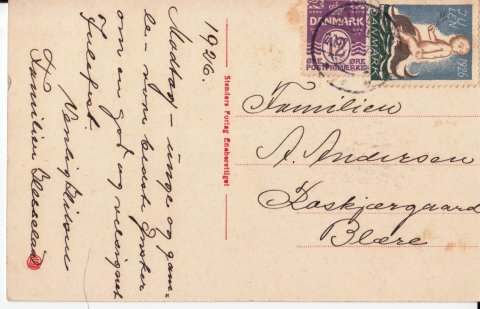 1926.
Modtag – unge og gam-
le – vore bedste Ønsker
om en god og velsignet
Julefest.
Venlig Hilsen
Familien
Stenders Forlag Eneberettiget
DANMARK
12
ØRE ØRE
POSTFRIMÆRKE
JULEN
1926
DANMARK
Familien
A. Andersen
Koskjærgaard
Blære